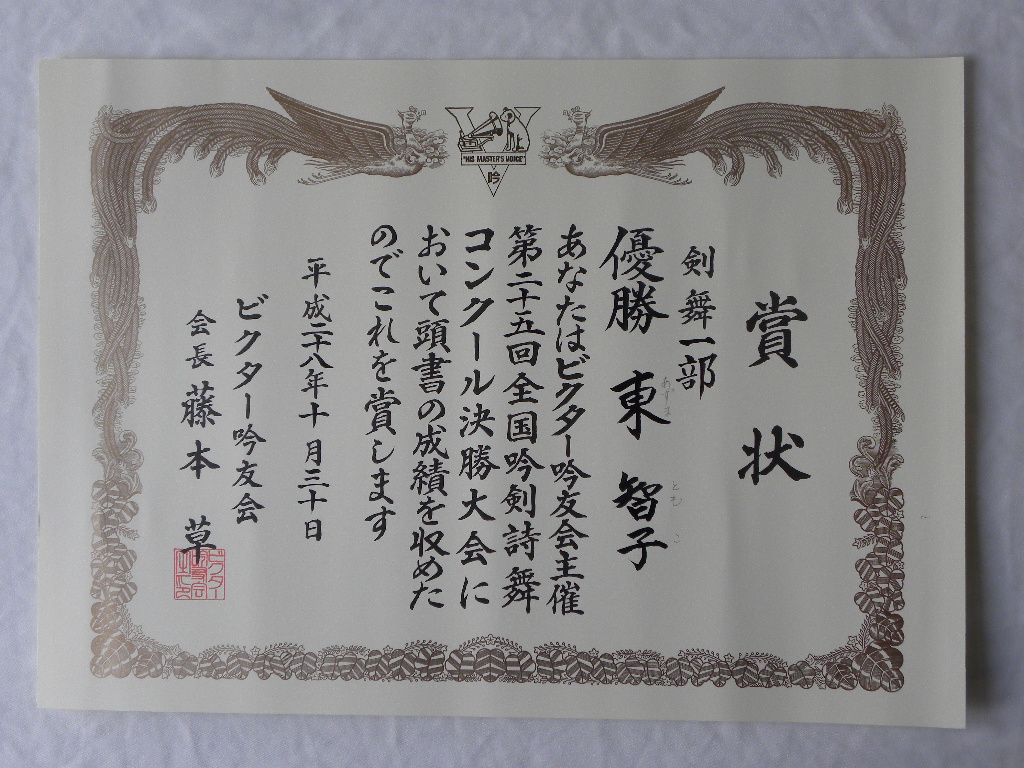 "HIS MASTER'S VOICE"
吟
賞状
剣舞一部
優勝 東 智子
あずま
とも こ
あなたはビクター吟友会主催
第二十五回全国吟剣詩舞
コンクール決勝大会に
おいて頭書の成績を収めた
のでこれを賞します
平成二十八年十月三十日
ビクター吟友会
会長 藤本 草